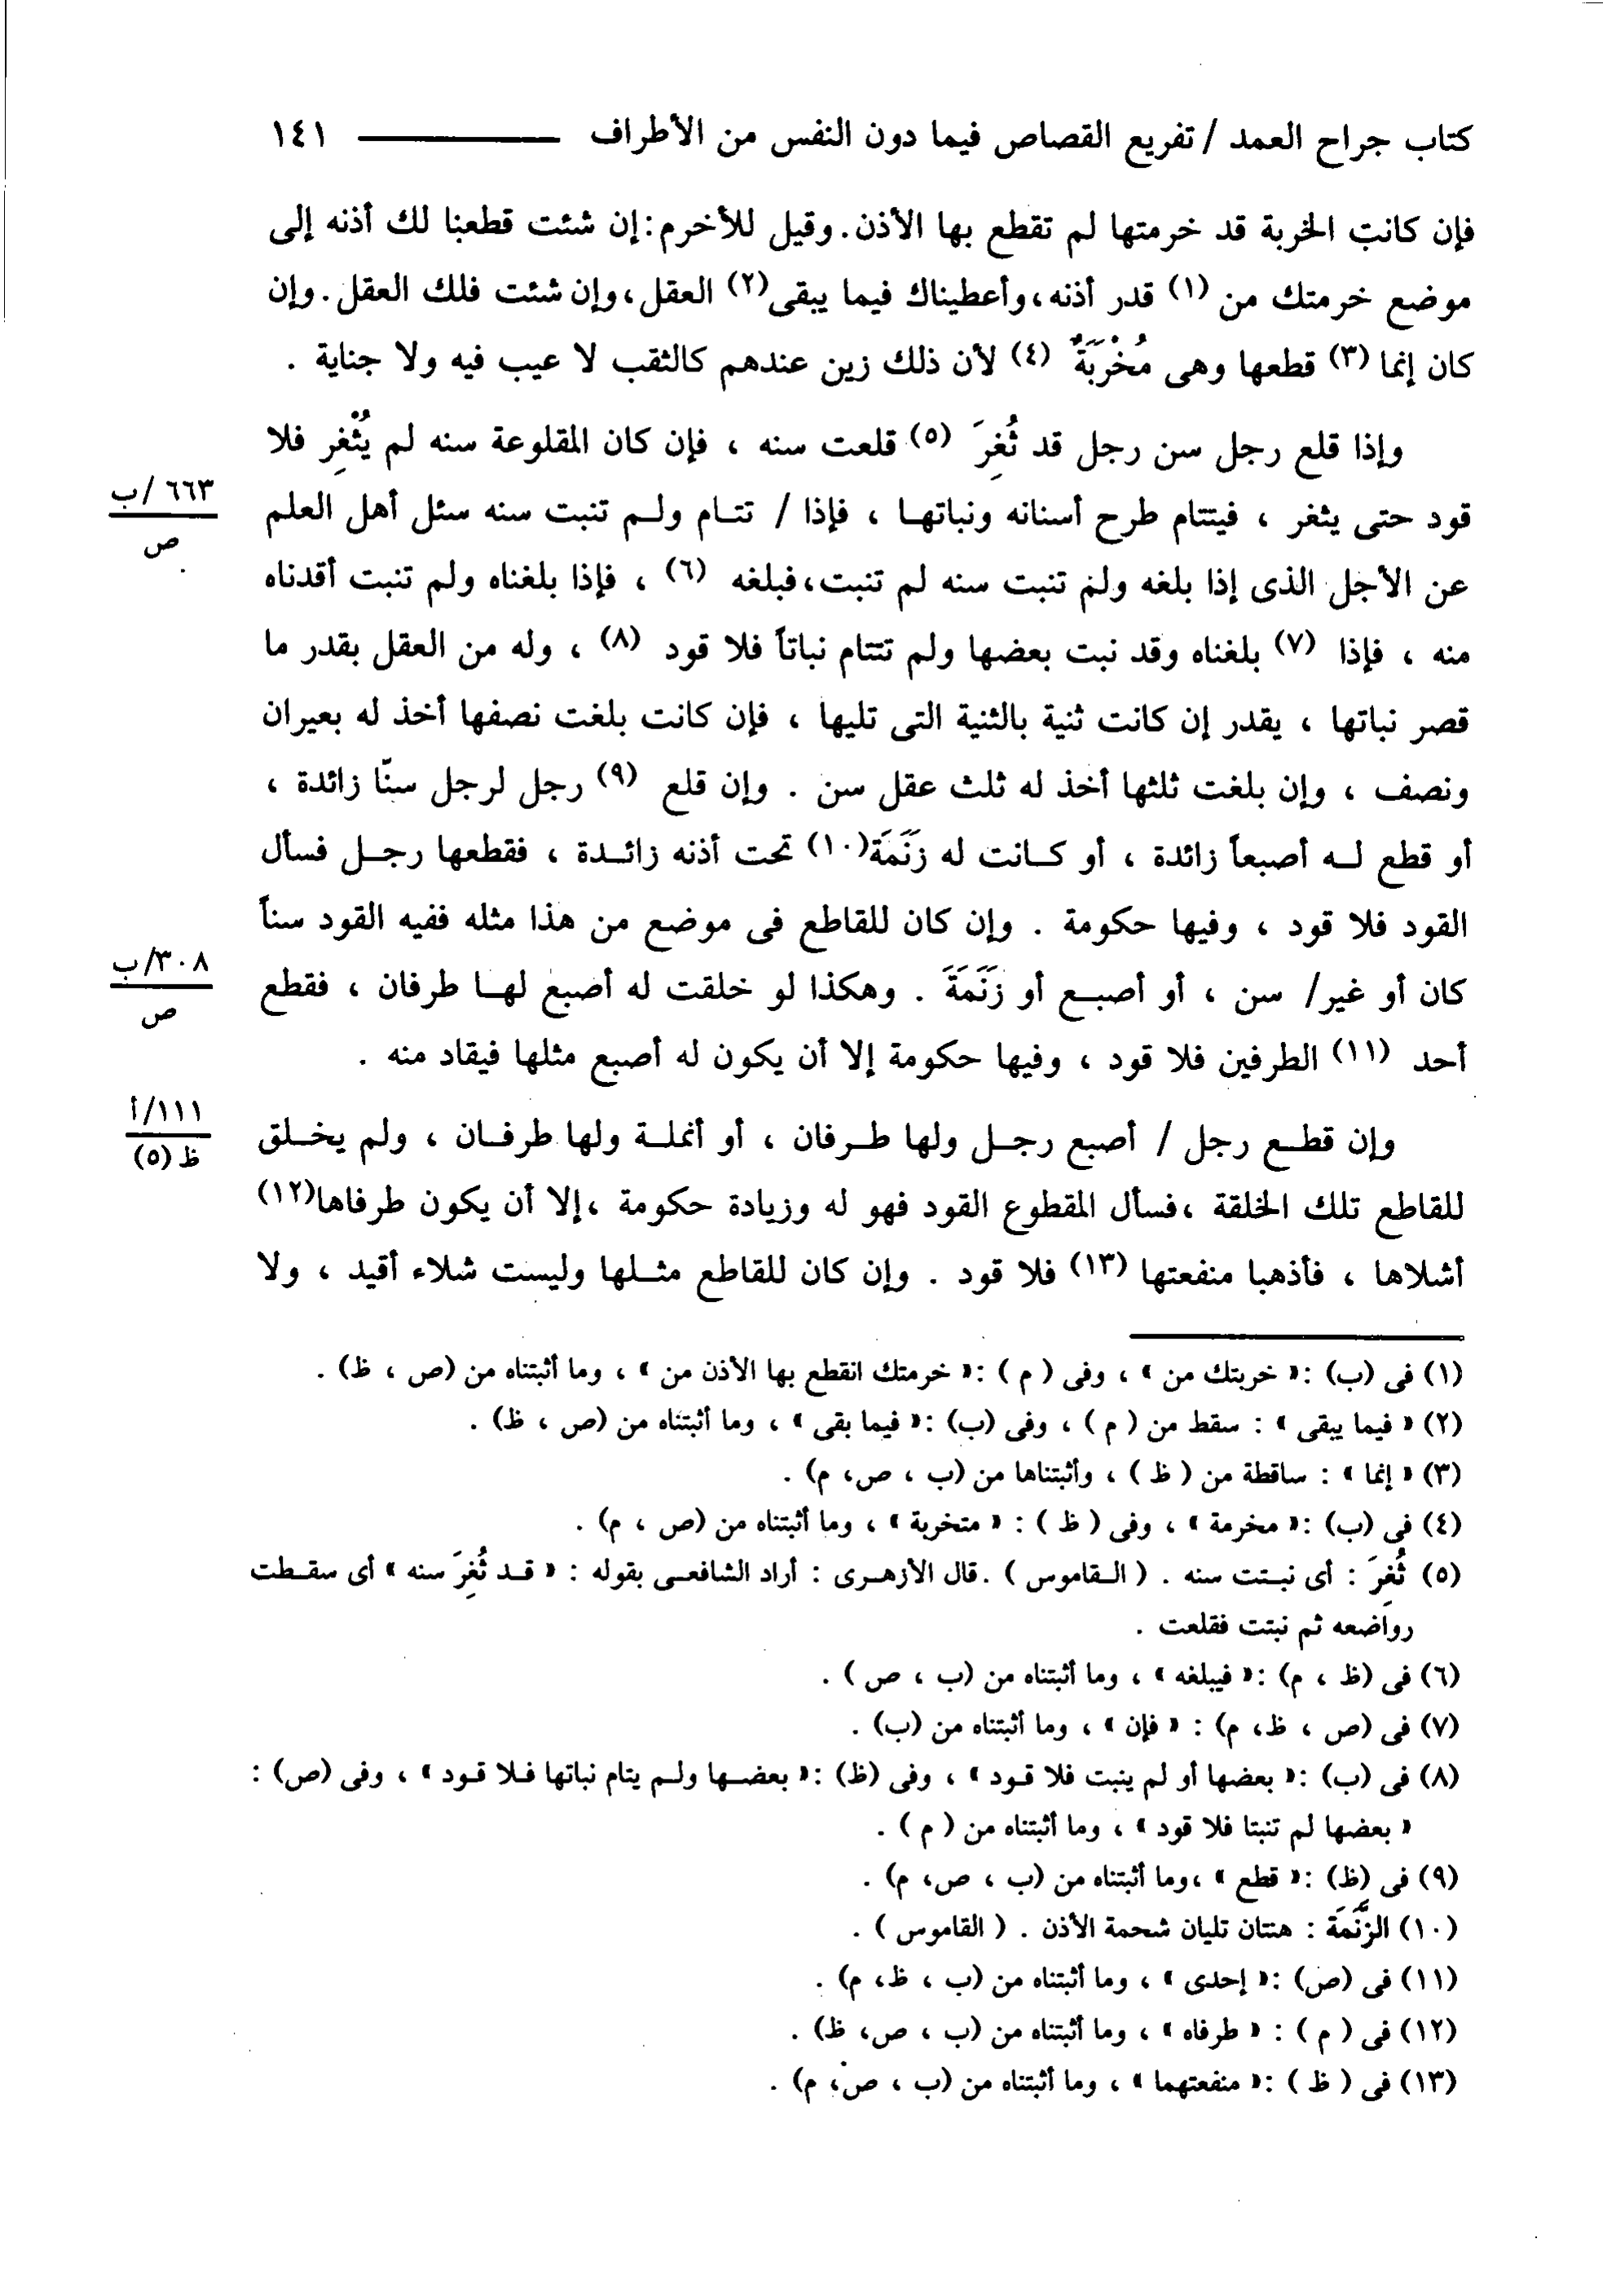 كتاب جراح العمد / تفريع القصاص فيما دون النفس من الأطراف ——— ١٤١
فإن كانت الخربة قد خرمتها لم تقطع بها الأذن. وقيل للأخرم: إن شئت قطعنا لك أذنه إلى
موضع خرمتك من (١) قدر أذنه، وأعطيناك فيما يبقى (٢) العقل، وإن شئت فلك العقل. وإن
كان إنما (٣) قطعها وهى مُخْرَبَةٌ (٤) لأن ذلك زين عندهم كالثقب لا عيب فيه ولا جناية .
وإذا قلع رجل سن رجل قد ثُغِرَ (٥) قلعت سنه ، فإن كان المقلوعة سنه لم يُثْغِر فلا
قود حتى يثغر ، فيتتام طرح أسنانه ونباتها ، فإذا / تتام ولم تنبت سنه سئل أهل العلم
٦٦٣/ب
ص
عن الأجل الذى إذا بلغه ولم تنبت سنه لم تنبت، فبلغه (٦) ، فإذا بلغناه ولم تنبت أقدناه
منه ، فإذا (٧) بلغناه وقد نبت بعضها ولم تتتام نباتاً فلا قود (٨) ، وله من العقل بقدر ما
قصر نباتها ، يقدر إن كانت ثنية بالثنية التى تليها ، فإن كانت بلغت نصفها أخذ له بعيران
ونصف ، وإن بلغت ثلثها أخذ له ثلث عقل سن . وإن قلع (٩) رجل لرجل سنّا زائدة ،
أو قطع له أصبعاً زائدة ، أو كانت له زَنَمَة(١٠) تحت أذنه زائدة ، فقطعها رجل فسأل
القود فلا قود ، وفيها حكومة . وإن كان للقاطع فى موضع من هذا مثله ففيه القود سناً
كان أو غير/ سن ، أو أصبع أو زَنَمَةَ . وهكذا لو خلقت له أصبع لها طرفان ، فقطع
٣٠٨/ب
ص
أحد (١١) الطرفين فلا قود ، وفيها حكومة إلا أن يكون له أصبع مثلها فيقاد منه .
وإن قطع رجل / أصبع رجل ولها طرفان ، أو أنملة ولها طرفان ، ولم يخلق
١١١/أ
ظ (٥)
للقاطع تلك الخلقة ، فسأل المقطوع القود فهو له وزيادة حكومة ، إلا أن يكون طرفاها(١٢)
أشلاها ، فأذهبا منفعتها (١٣) فلا قود . وإن كان للقاطع مثلها وليست شلاء أقيد ، ولا
(١) فى (ب) :« خربتك من » ، وفى ( م ) :« خرمتك انقطع بها الأذن من » ، وما أثبتناه من (ص ، ظ) .
(٢) « فيما يبقى » : سقط من ( م ) ، وفى (ب) :« فيما بقى » ، وما أثبتناه من (ص ، ظ) .
(٣) « إنما » : ساقطة من ( ظ ) ، وأثبتناها من (ب ، ص، م) .
(٤) فى (ب) :« مخرمة » ، وفى ( ظ ) : « متخربة » ، وما أثبتناه من (ص ، م) .
(٥) ثُغِرَ : أى نبتت سنه . ( القاموس ) .قال الأزهرى : أراد الشافعى بقوله : « قد ثُغِرَ سنه » أى سقطت
رواضعه ثم نبتت فقلعت .
(٦) فى (ظ ، م) :« فيبلغه » ، وما أثبتناه من (ب ، ص ) .
(٧) فى (ص ، ظ، م) : « فإن » ، وما أثبتناه من (ب) .
(٨) فى (ب) :« بعضها أو لم ينبت فلا قود » ، وفى (ظ) :« بعضها ولم يتام نباتها فلا قود » ، وفى (ص) :
« بعضها لم تنبتا فلا قود » ، وما أثبتناه من ( م ) .
(٩) فى (ظ) :« قطع » ، وما أثبتناه من (ب ، ص، م) .
(١٠) الزَّنَمَة : هنتان تليان شحمة الأذن . ( القاموس ) .
(١١) فى (ص) :« إحدى » ، وما أثبتناه من (ب ، ظ، م) .
(١٢) فى ( م ) : « طرفاه » ، وما أثبتناه من (ب ، ص، ظ) .
(١٣) فى ( ظ ) :« منفعتهما » ، وما أثبتناه من (ب ، ص، م) .